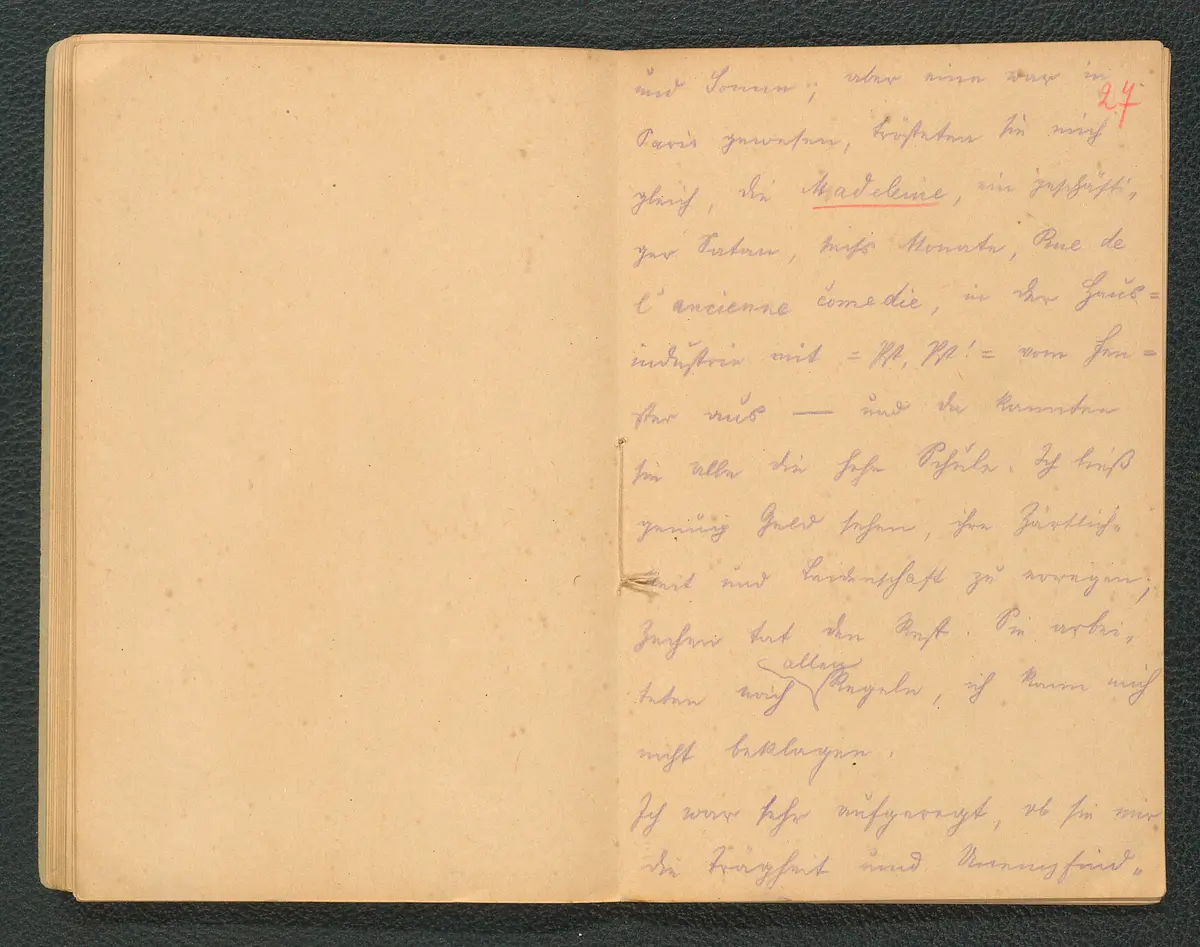 27
und Sonne; aber eine war in
Paris gewesen, trösteten sie mich
gleich, die Madeleine, ein geschäfti-
ger Satan, sechs Monate, Rue de
l'ancienne comedie, in der Haus=
industrie mit =Pst, Pst!= vom Fen=
ster aus — und da kannten
sie alle die hohe Schule. Ich ließ
genug Geld sehen, ihre Zärtlich-
keit und Leidenschaft zu erregen;
Zechen tat den Rest. Sie arbei-
teten nach allen Regeln, ich kann mich
nicht beklagen.
Ich war sehr aufgeregt, ob sie mir
die Trägheit und Unempfind-